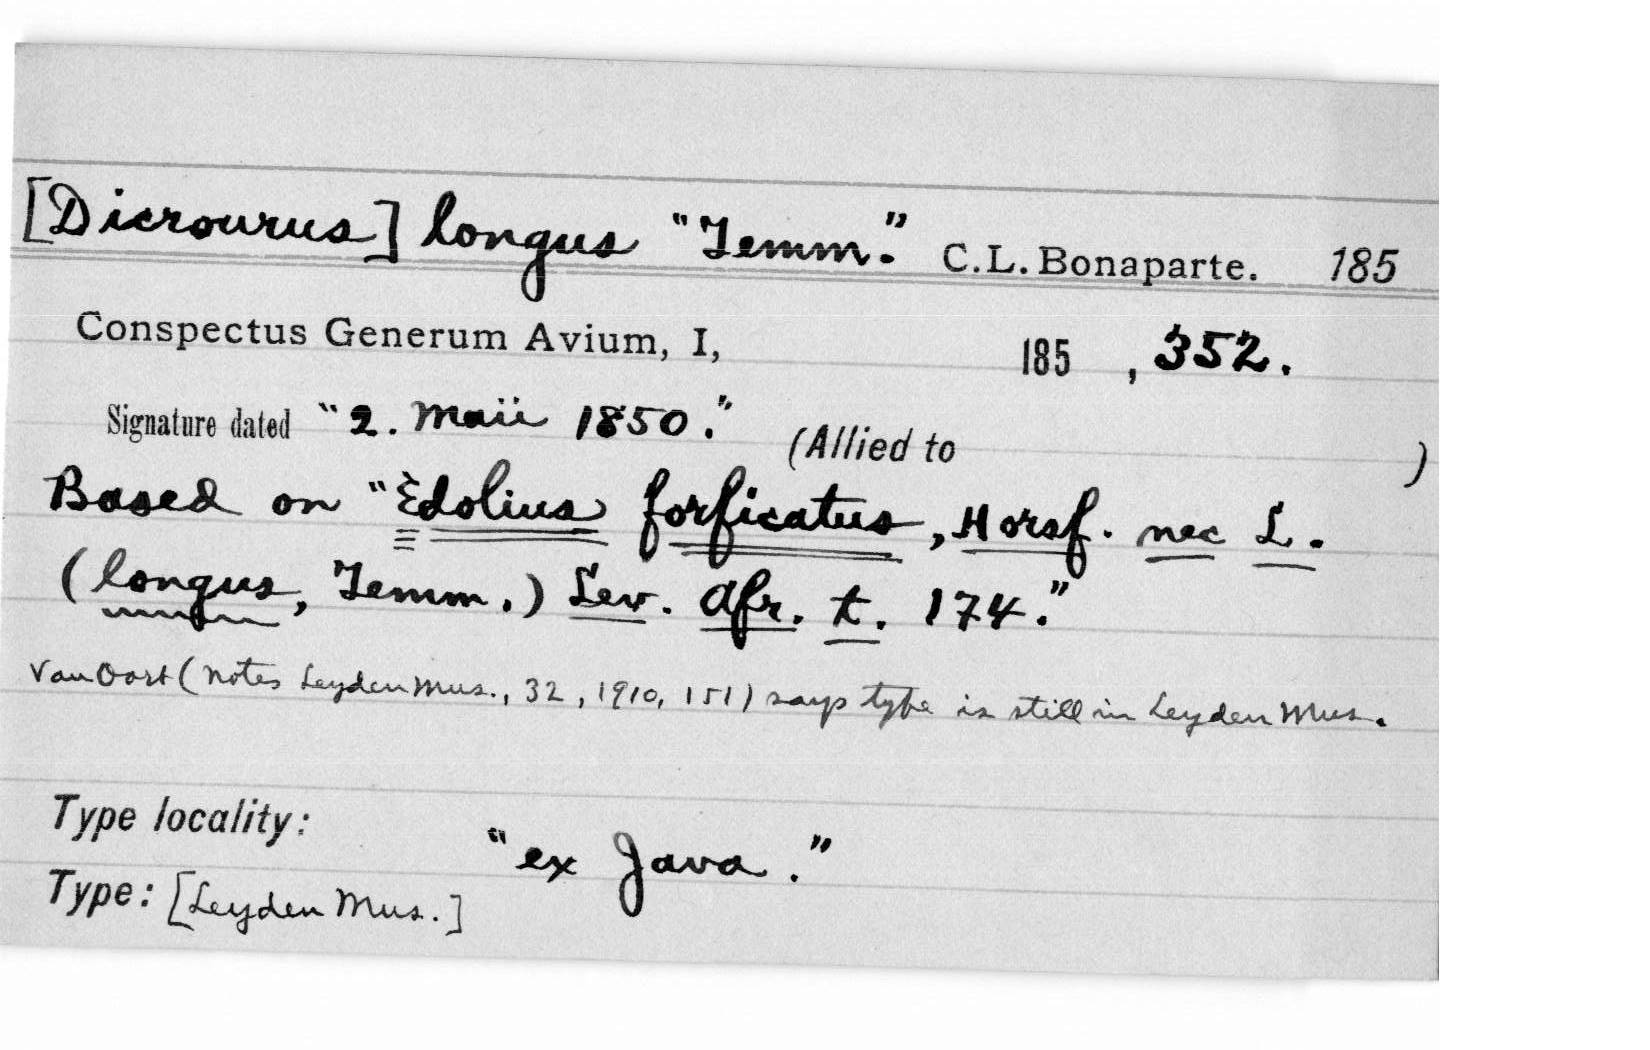 [Dicrourus] longus "Temm." C.L. Bonaparte. 185
Conspectus Generum Avium, I, 185 , 352.
Signature dated "2. Maii 1850." (Allied to )
Based on "Edolius forficatus, Horsf. nec L.
(longus, Temm.) Lev. Afr. t. 174."
Van Oort (Notes Leyden Mus., 32, 1910, 151) says type is still in Leyden Mus.
Type locality:
"ex Java."
Type: [Leyden Mus.]